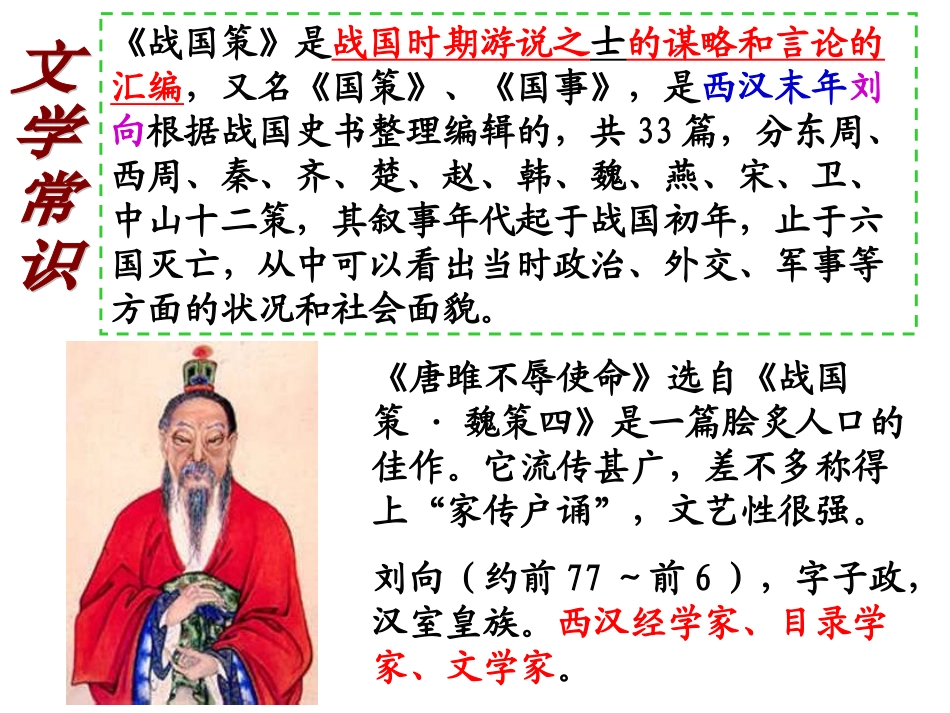 文学常识
《战国策》是战国时期游说之士的谋略和言论的
汇编，又名《国策》、《国事》，是西汉末年刘
向根据战国史书整理编辑的，共 33 篇，分东周、
西周、秦、齐、楚、赵、韩、魏、燕、宋、卫、
中山十二策，其叙事年代起于战国初年，止于六
国灭亡，从中可以看出当时政治、外交、军事等
方面的状况和社会面貌。
《唐雎不辱使命》选自《战国
策 · 魏策四》是一篇脍炙人口的
佳作。它流传甚广，差不多称得
上“家传户诵”，文艺性很强。
刘向（约前 77 ～前 6 ），字子政，
汉室皇族。西汉经学家、目录学
家、文学家。